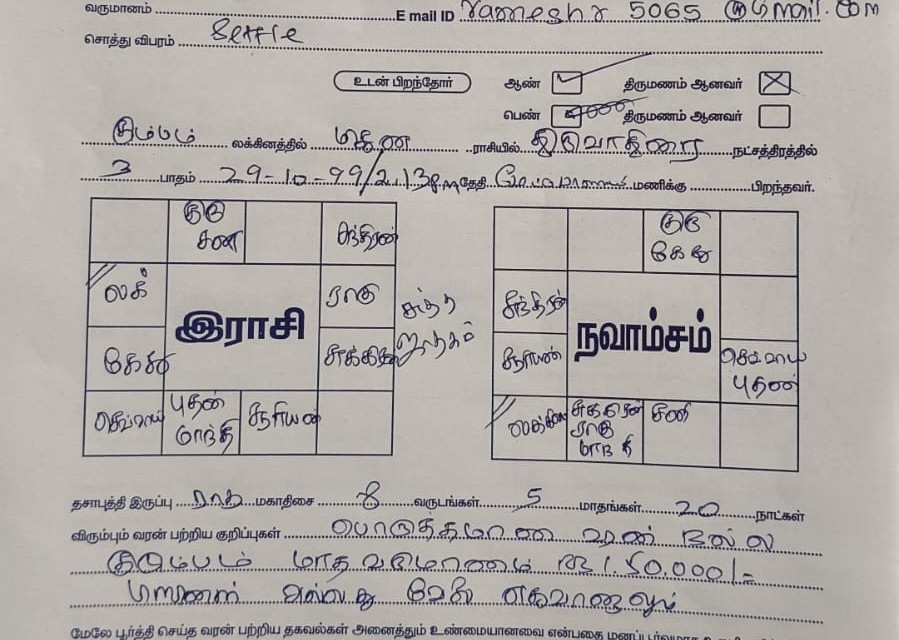 வருமானம் E mail ID rameshr 5065 @gmail.com
சொத்து விபரம் settle
உடன் பிறந்தோர் ஆண் திருமணம் ஆனவர்
பெண் திருமணம் ஆனவர்
கும்பம் லக்கினத்தில் மிதுன ராசியில் திருவாதிரை நட்சத்திரத்தில்
3 பாதம் 29-10-99/2.13 P.m தேதி மணிக்கு பிறந்தவர்.
குரு சனி சந்திரன்
லக் ராகு சுத்த
ஜாதகம்
கேது சுக்கிரன்
இராசி
செவ்வாய் புதன் மாந்தி சூரியன்
குரு கேது
சந்திரன்
சூரியன் செவ்வாய் புதன்
நவாம்சம்
லக்கின சுக்கிரன் ராகு மாந்தி சனி
தசாபுத்தி இருப்பு ராகு மகாதிசை 8 வருடங்கள் 5 மாதங்கள் 20 நாட்கள்
விரும்பும் வரன் பற்றிய குறிப்புகள் பொருத்தமான வரன் நல்ல
குடும்பம் மாத வருமானம் 1.50.000/=
அல்லது
மேலே பூர்த்தி செய்த வரன் பற்றிய தகவல்கள் அனைத்தும் உண்மையானவை என்பதை மனப்பூர்வமாக